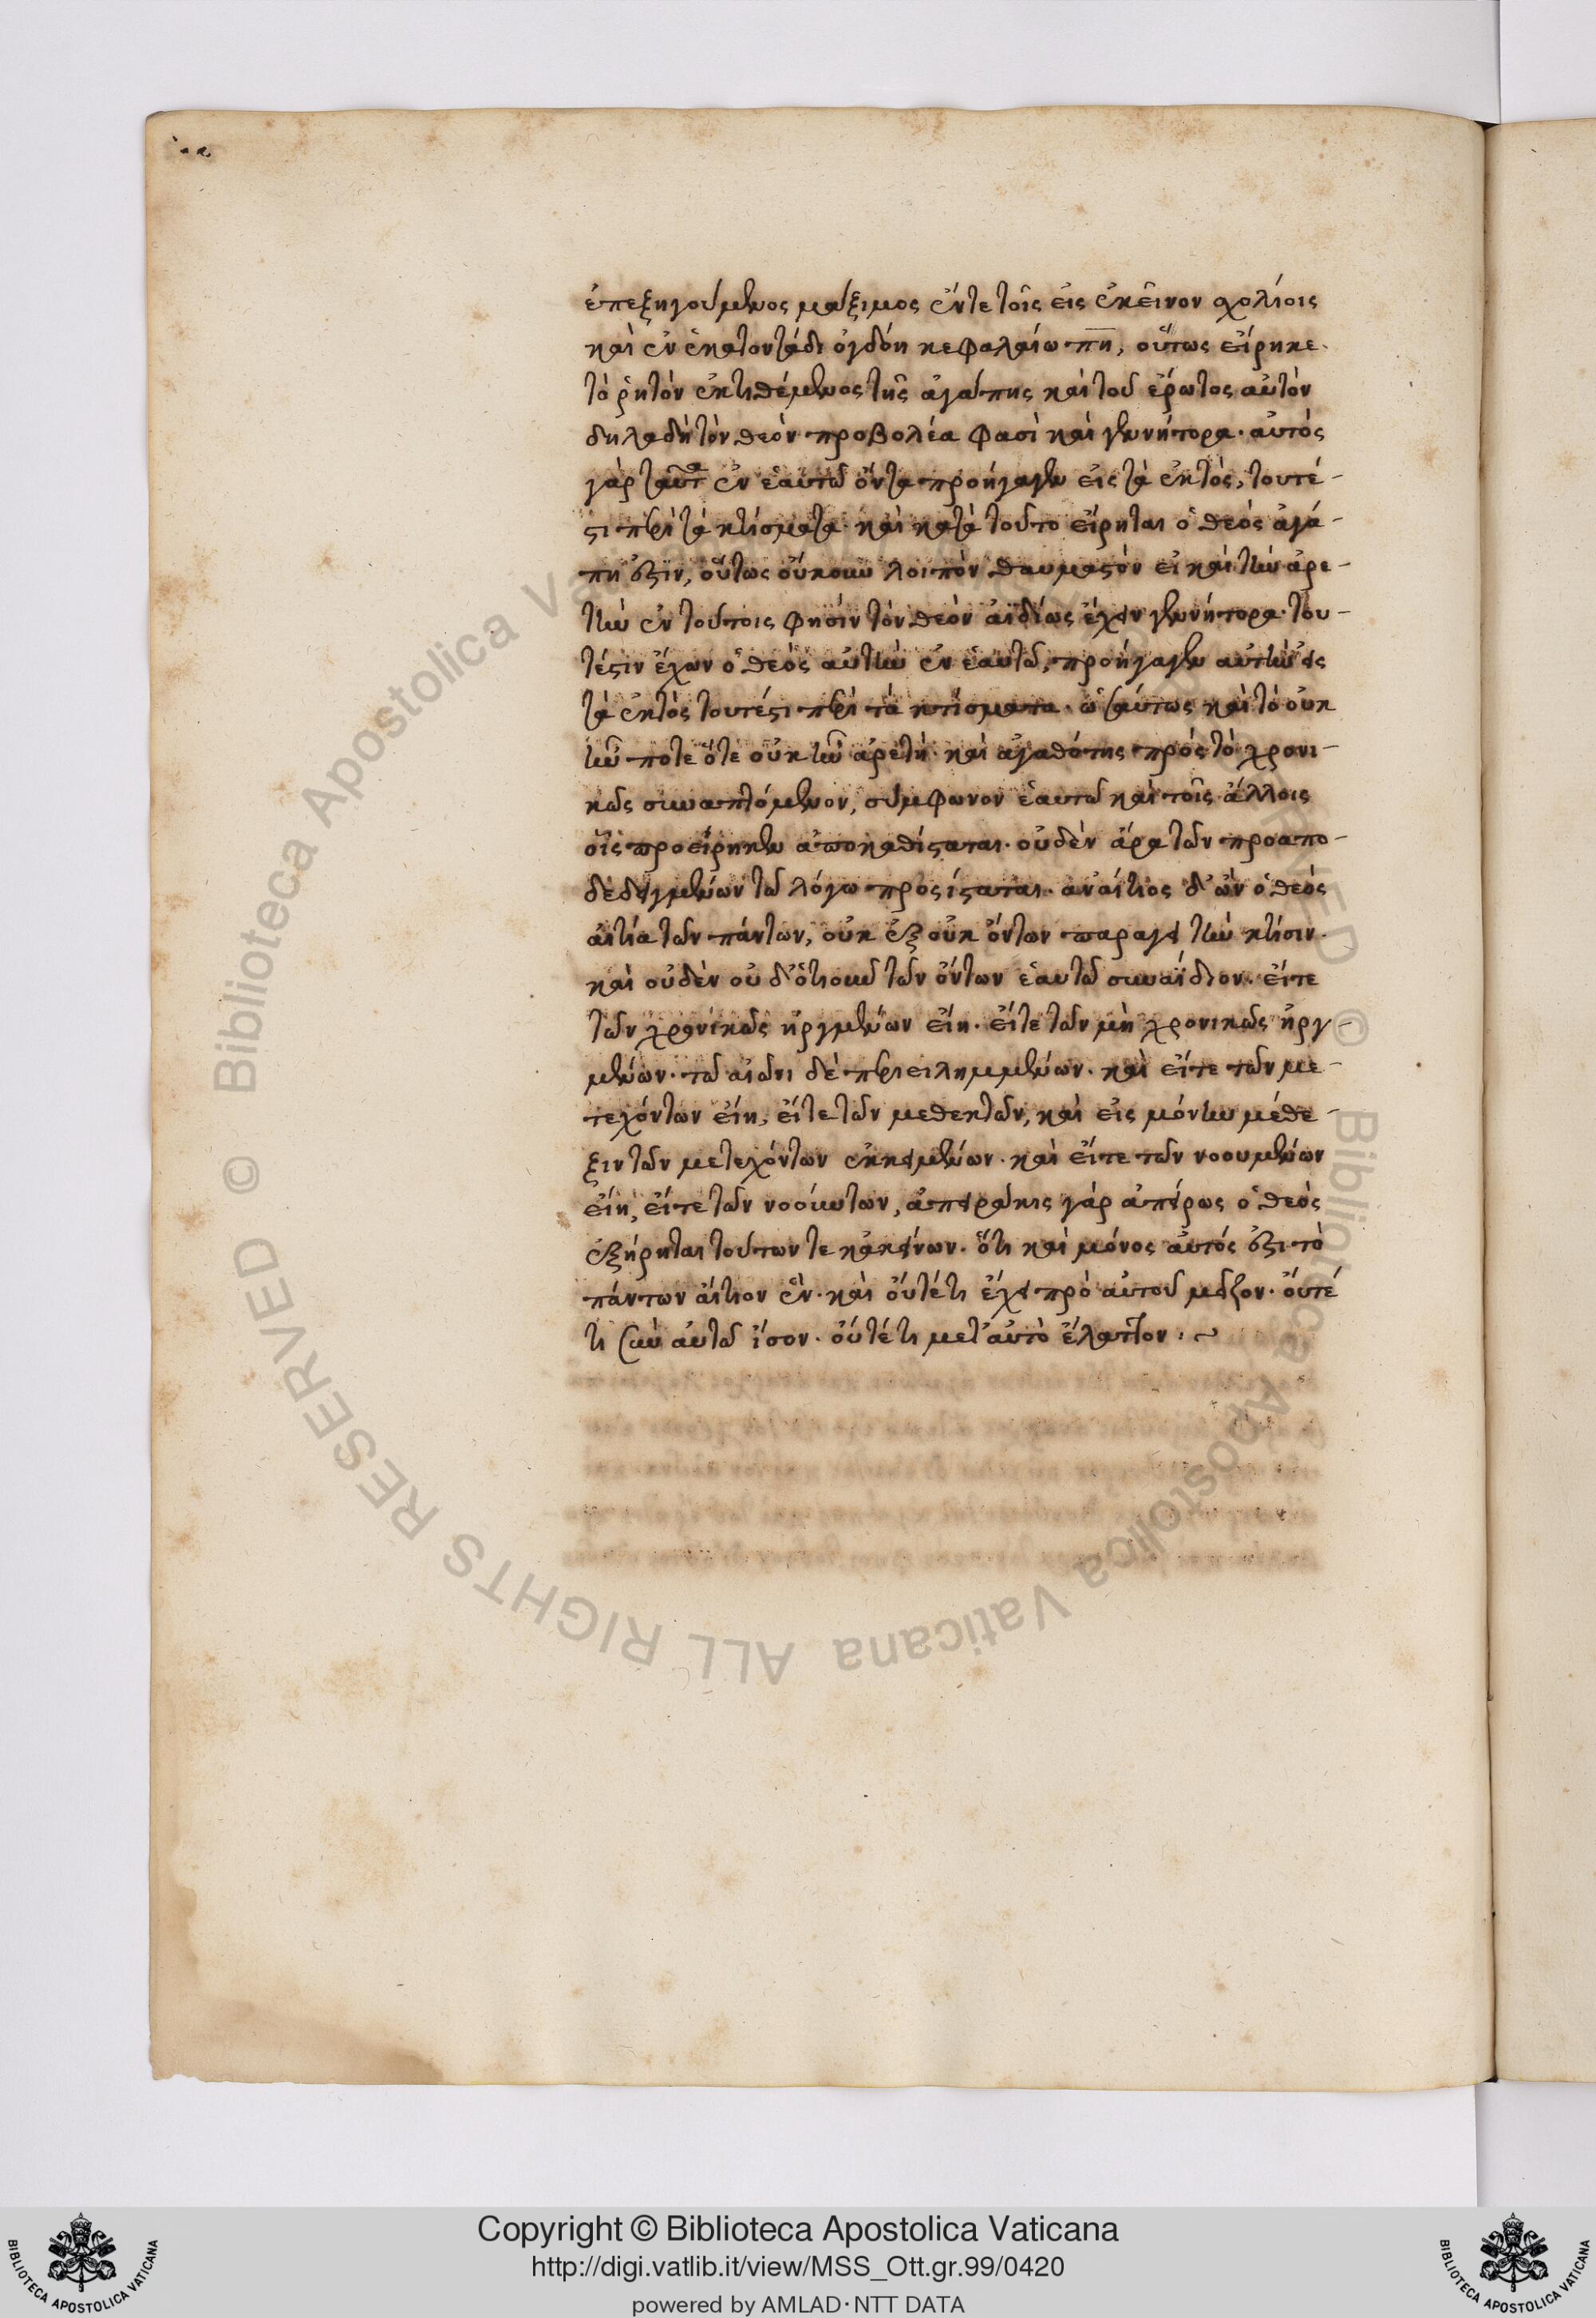 ἐπεξηγούμενος μάξιμος ἔν τε τοῖς εἰς ἐκεῖνον σχολίοις
καὶ ἐν ἑκατοντάδι ὀγδόη κεφαλαίω πη, οὕτως εἴρηκε·
τὸ ῥητὸν ἐκτιθέμενος τῆς ἀγάπης καὶ τοῦ ἔρωτος αὐτὸν
δηλαδὴ τὸν θεὸν προβολέα φασὶ καὶ γεννήτορα· αὐτὸς
γὰρ ταῦτα ἐν ἑαυτῶ ὄντα προήγαγεν εἰς τὰ ἐκτὸς, τουτέ-
στι περὶ τὰ κτίσματα· καὶ κατὰ τοῦτο εἴρηται ὁ θεὸς ἀγά-
πη ἐστιν, οὕτως οὐκοῦν λοιπὸν θαυμαστὸν εἰ καὶ τὴν ἀρε-
τὴν ἐν τούτοις φησὶν τὸν θεὸν ἀϊδίως ἔχειν γεννήτορα· του-
τέστιν ἔχων ὁ θεὸς αὐτὴν ἐν ἑαυτῶ, προήγαγεν αὐτὴν εἰς
τὰ ἐκτὸς τουτέστι περὶ τὰ κτίσματα· ὡσαύτως καὶ τὸ οὐκ
ἦν ποτε ὅτε οὐκ ἦν ἀρετὴ· καὶ ἀγαθότης πρὸς τὸ χρονι-
κῶς συναπτόμενον, σύμφωνον ἑαυτῶ καὶ τοῖς ἄλλοις
οἷς προείρηκεν ἀποκαθίσταται· οὐδὲν ἄρα τῶν προαπο-
δεδειγμένων τῶ λόγω προςίσταται· ἀναίτιος δ' ὢν ὁ θεὸς
αἰτία τῶν πάντων, οὐκ ἐξ οὐκ ὄντων παράγει τὴν κτίσιν·
καὶ οὐδὲν οὐδ' ὁτιοῦν τῶν ὄντων ἑαυτῶ συναΐδιον· εἴτε
τῶν χρονικῶς ἠργμένων εἴη· εἴτε τῶν μὴ χρονικῶς ἠργ-
μένων· τῶ αἰῶνι δὲ περιειλημμένων· καὶ εἴτε τῶν με-
τεχόντων εἴη, εἴτε τῶν μεθεκτῶν, καὶ εἰς μόνην μέθε-
ξιν τῶν μετεχόντων ἐκκειμένων· καὶ εἴτε τῶν νοουμένων
εἴη, εἴτε τῶν νοούντων, ἀπειράκις γὰρ ἀπείρως ὁ θεὸς
ἐξήρηται τούτων τε κἀκείνων· ὅτι καὶ μόνος αὐτός ἐστι τὸ
πάντων αἴτιον ἓν· καὶ οὔτέ τι ἔχει πρὸ αὐτοῦ μεῖζον· οὔτέ
τι σὺν αὐτῶ ἴσον· οὔτέ τι μετ' αὐτὸ ἔλαττον· ~
Copyright © Biblioteca Apostolica Vaticana
http://digi.vatlib.it/view/MSS_Ott.gr.99/0420
powered by AMLAD·NTT DATA